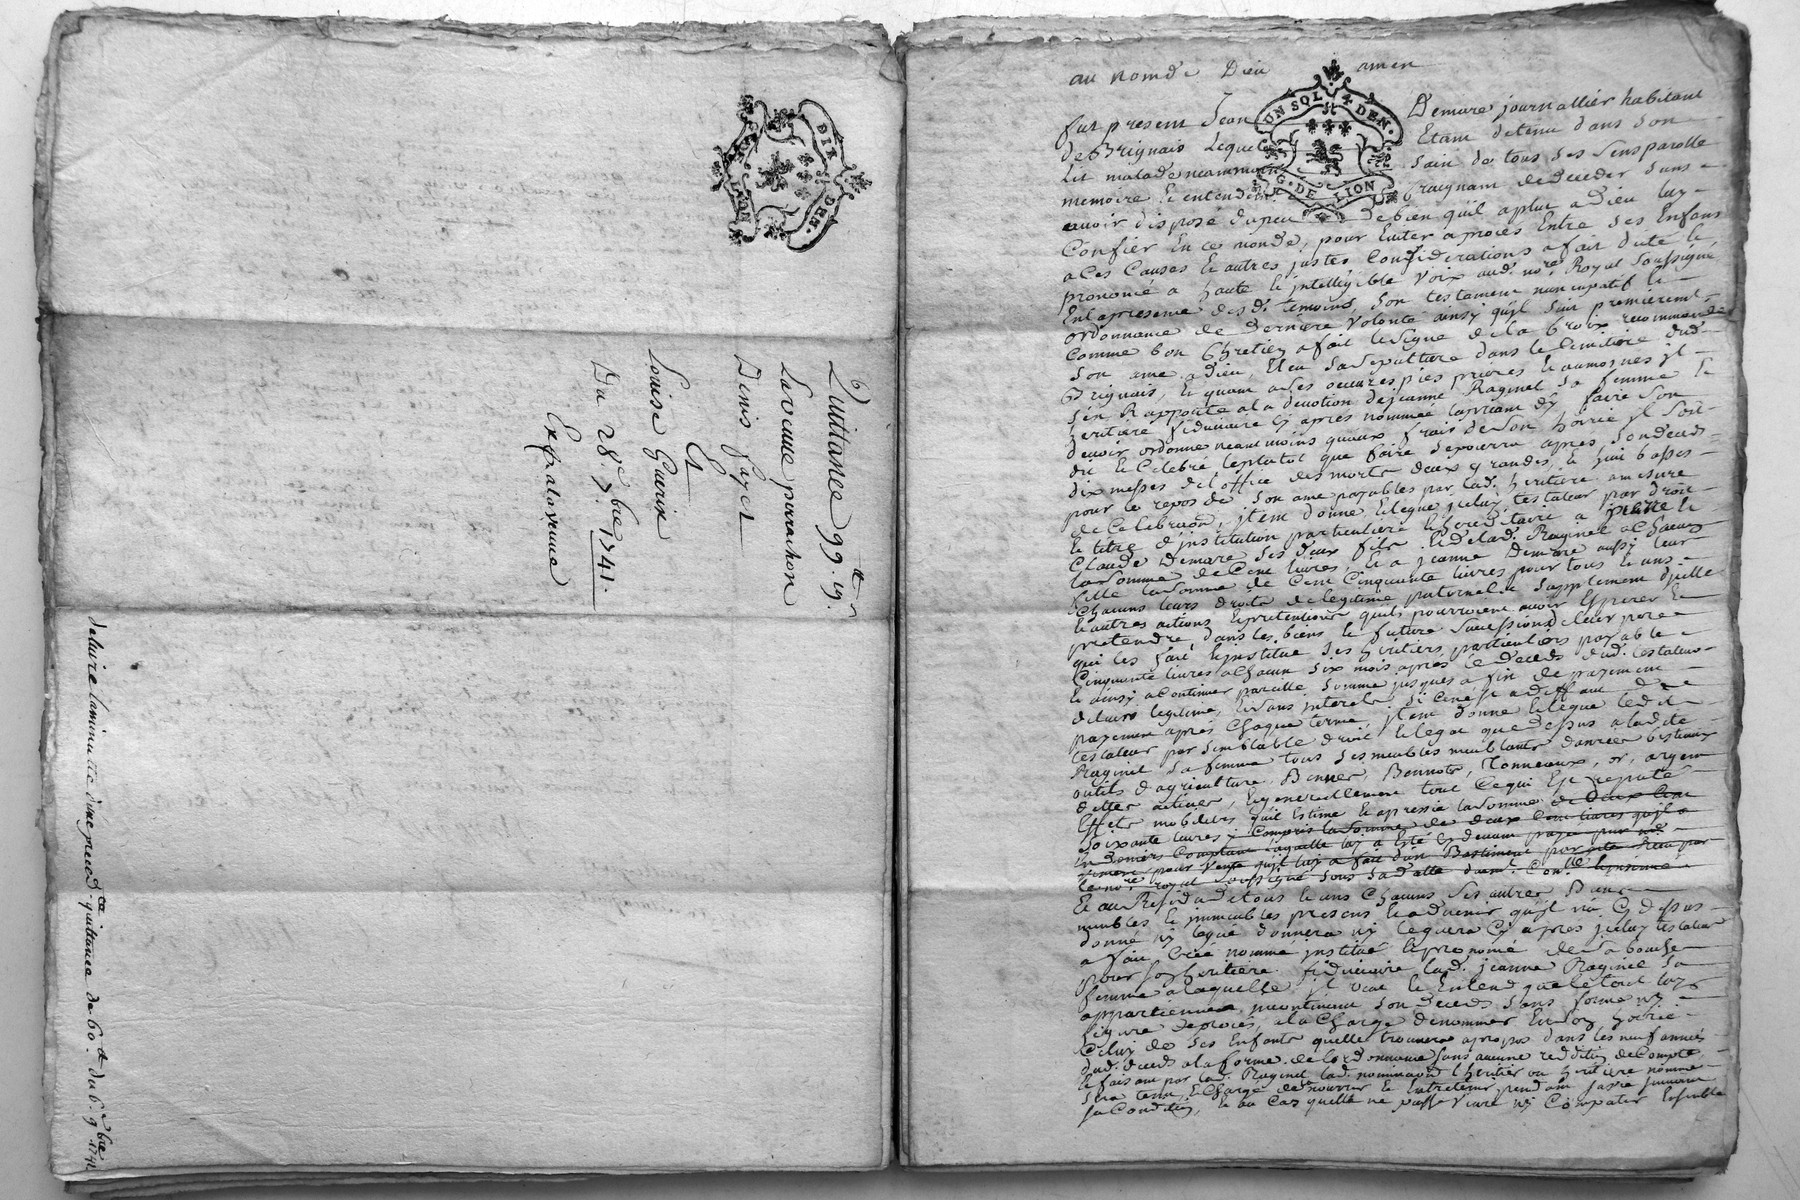 DIX DEN.
GE. DE LION
Quittance 99.tt 15.s
La veuve parrachon
Denis Fayet
Et
Louise Guerin
Du 28.e 7.bre 1741.
Exp. a la veuve
a la minutte d'une preced.te quittance de 60.tt du 6.e 9.bre 1741
au nom de Dieu amen
UN SOL 4 DEN.
G. DE LION
fut present Jean Demare journallier habitant
de Brignais Lequel Etant detenu dans son
Lit malade neanmoins sain de tous ses sens parolle
memoire & entendem. Craignant de deceder sans
avoir dispose du peu de bien qu'il a plut a Dieu luy
Confier En ce monde, pour Eviter a proces Entre ses Enfans
a Ces Causes & autres justes Considerations a fait dicté &
prononcé a haute & intelligible Voix aud. no.re Royal soussigné
En la presence des d. temoins, son testament nuncupatif &
ordonnance de Derniere Volonté ainsy qu'il suit premierem.t
Comme bon Chretien a fait le signe de la Croix recommandé
son ame a Dieu, Eleu sa sepulture dans le Cimitiere dud.
Brignais, & quant a ses oeuvres pies prieres & aumosnes jl
s'en Rapporte a la devotion de jeanne Raginel sa femme &
heritiere fiduciaire Cy apres nommée la priant d'y faire son
devoir ordonne neantmoins qu'aux frais de son hoirie jl soit
dit & Celebré le plutot que faire se pourra apres son deceds
dix messes de l'office des morts deux grandes, & huit basses
pour le repos de son ame payables par lad. heritiere a mesure
de Celebraon, jtem donne & legue jceluy testateur par droit
& titre d'institution particuliere & hereditaire a pierre &
Claude Demare ses deux fils & de lad. Raginel a Chacun
la somme de Cent livres, & a jeanne Demare aussi leur
fille la somme de Cent Cinquante livres pour tous & uns
Chacuns leurs droits de legitime paternelle supplement d'jcelle
& autres actions & pretentions qu'ils pourroient avoir Esperer &
pretendre dans les biens & future succession de leur pere
qui les faré & institue ses heritiers particuliers payable
Cinquante livres a Chacun six mois apres le deceds dud. testateur
& ainsy a Continuer pareille somme jusques a fin de payement
desdites legitime, & sans interets si ce n'est a deffaut de
payement apres Chaque terme, jtem donne & legue ledit
testateur par semblable droit & legat que dessus a ladite
Raginel sa femme tous ses meubles meublants danrées bestiaux
outils d'agriculture, Bennes, Bennots, Tonneaux, or, argent
dettes actives, & generallement tout Ce qui Est reputé
Effets mobiliers qu'il Estime & apretie la somme de deux Cent
soixante livres y Compris la somme de deux Cent livres qu'il a
Et au Residu de tous & uns Chacuns ses autres Biens
meubles & jmmeubles presens & advenir qu'jl n'a Cy dessus
donné ny legué donnera ny leguera Cy apres jceluy testateur
a fait Créé nommé institué & prononcé de sa bouche
pour son heritiere fiduciaire lad. jeanne Raginel sa
femme a laquelle jl veut & Entend que le tout luy
appartienne jncontinent son deceds sans forme ny
figure de proces, a la Charge de nommer En son hoirie
Celuy de ses Enfants quelle trouvera a propos dans les neuf années
dud. deceds a la forme de l'ordonnance sans aucune reddition de Compte,
& faisant par lad. Raginel lad. nomination l'heritier ou heritiere nommé
sera tenu & Chargé de la nourrir & Entretenir pendant sa vie suivant
sa Condition, & au Cas quelle ne puisse vivre ny Compatir Ensemble